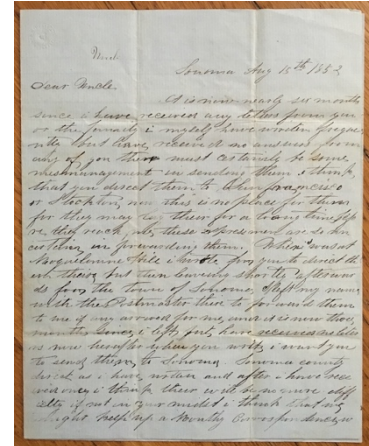 Sonoma Aug 15th 1852
Dear Uncle.
It is now nearly six months
since i have received any letters from you
or the family i myself have written freque
ntly but have received no answer from
any of you there must certainly be some
mismanagement in sending them i think
that you direct them to San francisco
or Stockton, now this is no place for them
for they may lay their for a long time
re they reach me, these expressmen are so
in forwarding them, When i was at
Hill i wrote for you to direct the
m there, but then leaving shortly afterwar
ds for the town of Sonoma, i left my name
with the Postmaster their to forward them
to me if any arrived for me, and it is now three
months since i left, but have received no
as now when you write i want you
to send them to Sonoma Sonoma county
direct as i have written and after i have rece
ived one, i think their will be no more diff
iculty if not in your midst i think that we
might keep up a Monthly Correspondence